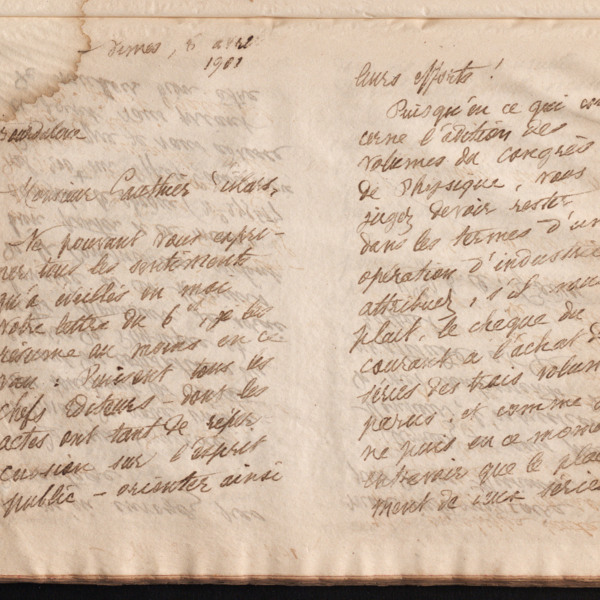 Nîmes, 8 avril
1901
Bourdaloue
Monsieur Gauthier Villars,
Ne pouvant vous expri-
mer tous les sentiments
qu'a eveillés en moi
votre lettre du 6 ct, je les
résume au moins en ce
vœu : Puissent tous les
chefs Editeurs - dont les
actes ont tant de réper
cussion sur l'esprit
public - orienter ainsi
leurs efforts !
Puisqu'en ce qui con
cerne l'édition des
volumes du congrès
de Physique, vous
jugez devoir rester
dans les termes d'une
opération d'industrie
attribuez, s'il vous
plait, le chèque du
courant a l'achat de
séries des trois volumes
parus, et comme
ne puis en ce moment
entrevoir que le place
ment de six séries